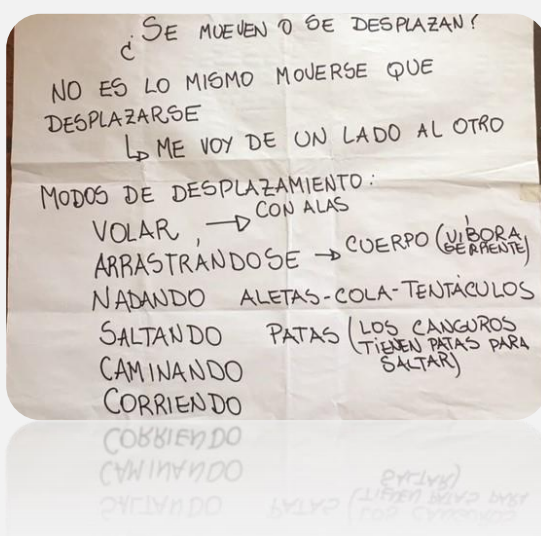 ¿SE MUEVEN O SE DESPLAZAN?
NO ES LO MISMO MOVERSE QUE
DESPLAZARSE
↳ ME VOY DE UN LADO AL OTRO
MODOS DE DESPLAZAMIENTO:
VOLAR, → CON ALAS
ARRASTRANDOSE → CUERPO (VÍBORA, SERPIENTE)
NADANDO ALETAS-COLA-TENTÁCULOS
SALTANDO PATAS (LOS CANGUROS
TIENEN PATAS PARA
SALTAR)
CAMINANDO
CORRIENDO